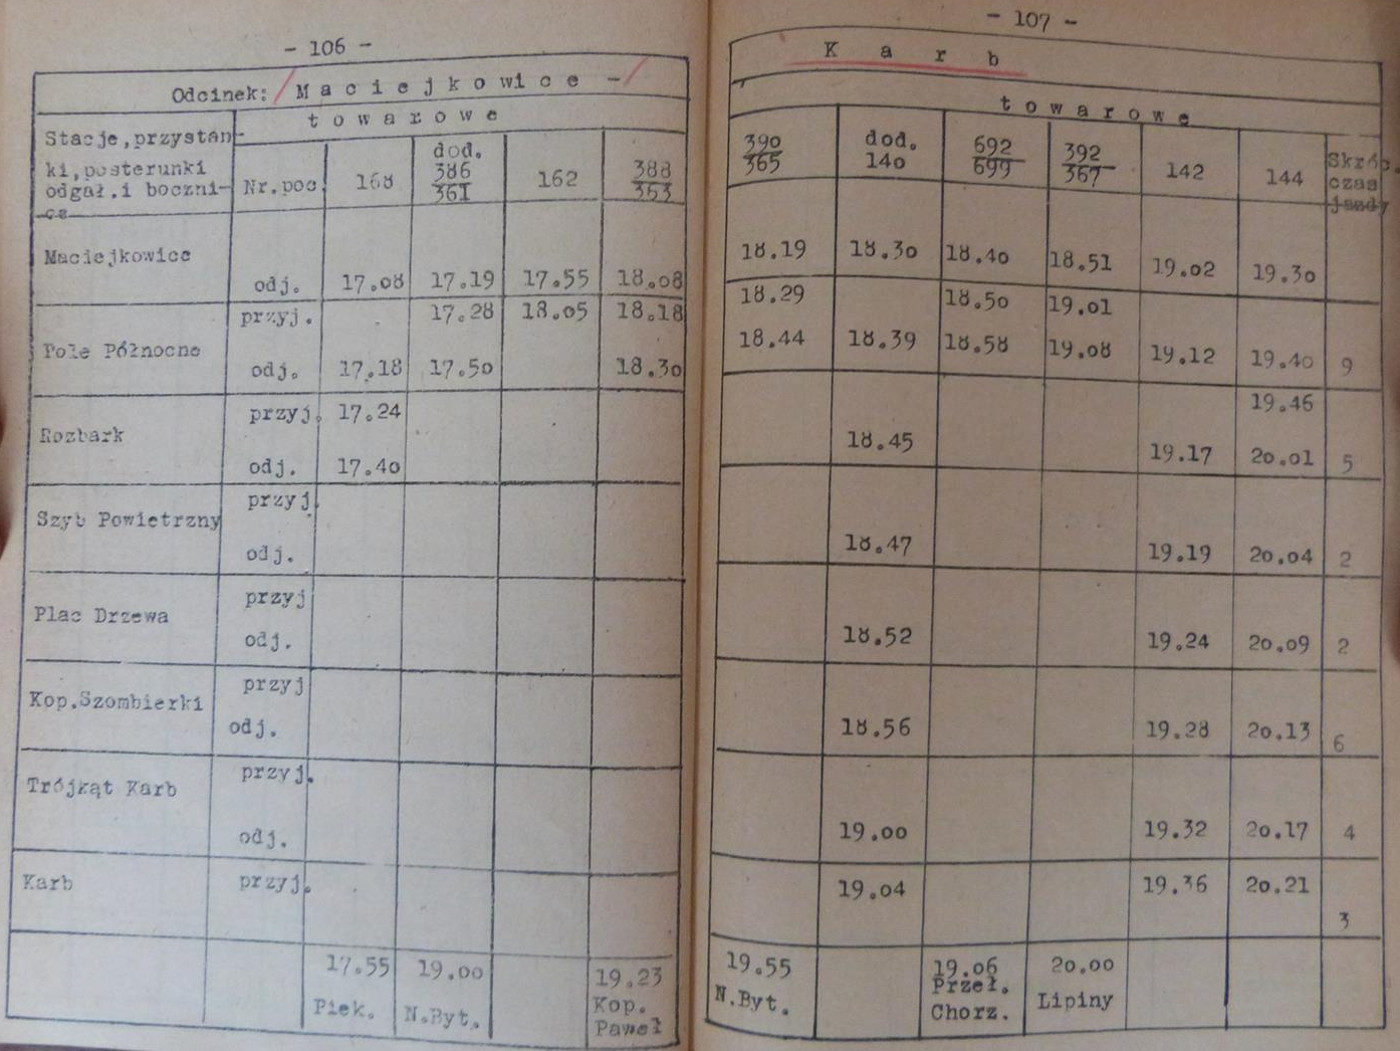 - 106 -
Odcinek: / Maciejkowice - /
Stacje,przystan-
ki,posterunki
odgał.i boczni-
ce
towarowe
Nr.poc. 168 dod. 386/361 162 388/363
Maciejkowice
odj. 17.08 17.19 17.55 18.08
przyj. 17.28 18.05 18.18
Pole Północne
odj. 17.18 17.50 18.30
przyj. 17.24
Rozbark
odj. 17.40
przyj.
Szyb Powietrzny
odj.
przyj
Plac Drzewa
odj.
przyj
Kop.Szombierki
odj.
przyj.
Trójkąt Karb
odj.
Karb przyj.
17.55 19.00 19.23
Piek. N.Byt. Kop.
Paweł
- 107 -
Karb
towarowe
390/365 dod. 140 692/699 392/367 142 144 Skróc.
czas
jazdy
18.19 18.30 18.40 18.51 19.02 19.30
18.29 18.50 19.01
18.44 18.39 18.58 19.08 19.12 19.40 9
19.46
18.45 19.17 20.01 5
18.47 19.19 20.04 2
18.52 19.24 20.09 2
18.56 19.28 20.13 6
19.00 19.32 20.17 4
19.04 19.36 20.21
3
19.55 19.06 20.00
N.Byt. Przeł. Lipiny
Chorz.